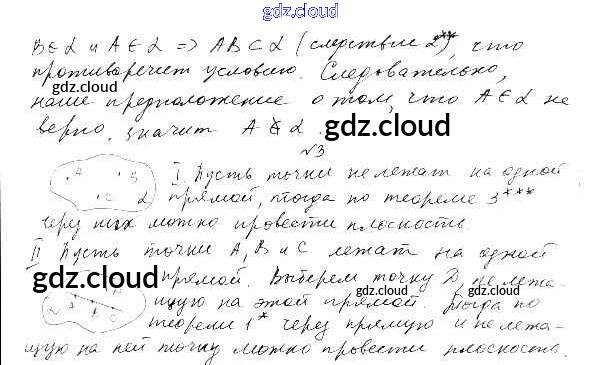 gdz.cloud
B ∈ α и A ∈ α => AB ⊂ α (следствие 2***), что
противоречит условию. Следовательно,
наше предположение о том, что A ∈ α не
верно, значит A ∉ α.
gdz.cloud
№3
A B
C α
I Пусть точки не лежат на одной
прямой, тогда по теореме 3***
gdz.cloud
через них можно провести плоскость.
II Пусть точки A, B и C лежат на одной
gdz.cloud
прямой. Выберем точку D, не лежа-
щую на этой прямой. Тогда по
gdz.cloud
α A
теореме 1* через прямую и не лежа-
щую на ней точку можно провести плоскость.